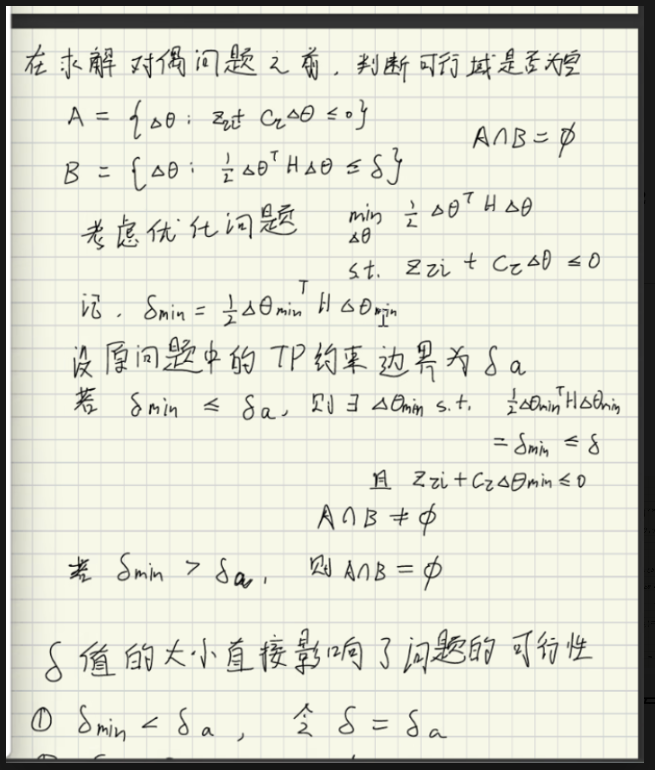 在求解对偶问题之前，判断可行域是否为空
A = {Δθ: Zzi + CzΔθ ≤ 0}
A∩B = ∅
B = {Δθ: ½ΔθᵀHΔθ ≤ δ}
考虑优化问题 min ½ΔθᵀHΔθ
Δθ
s.t. Zzi + CzΔθ ≤ 0
记. δmin = ½ΔθminᵀHΔθmin
设原问题中的TP约束边界为δa
若 δmin ≤ δa, 则∃Δθmin s.t. ½ΔθminᵀHΔθmin
= δmin ≤ δ
且 Zzi + CzΔθmin ≤ 0
A∩B ≠ ∅
若 δmin > δa, 则A∩B = ∅
δ值的大小直接影响了问题的可行性
① δmin < δa, 令 δ = δa